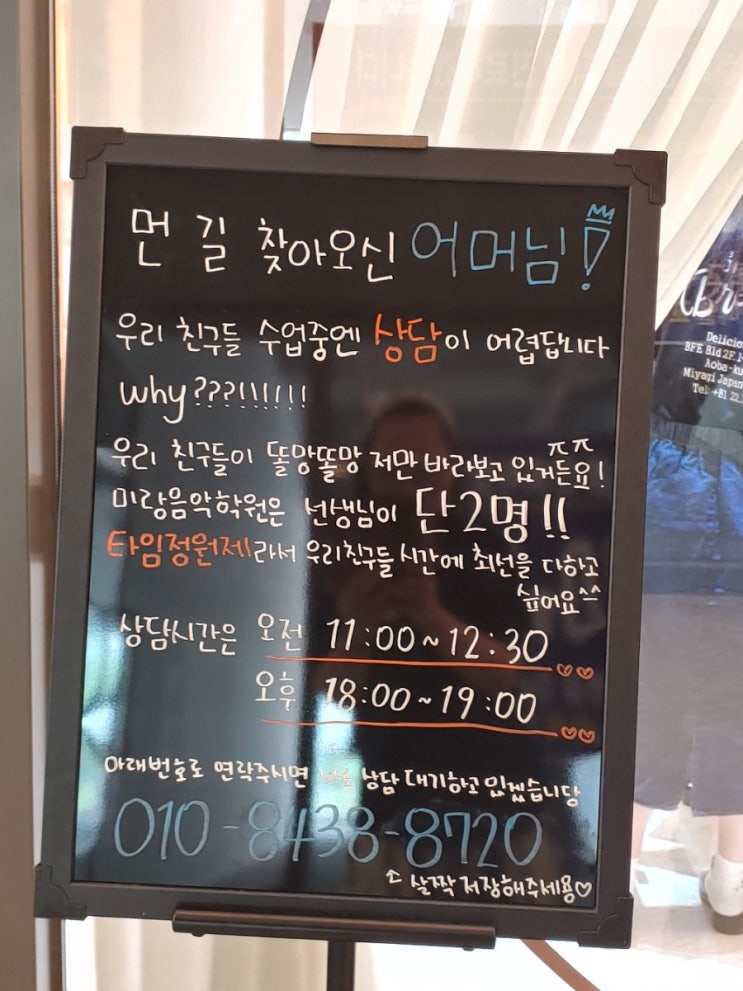 먼 길 찾아오신 어머님!
우리 친구들 수업중엔 상담이 어렵답니다
why???!!!!!!
우리 친구들이 똘망똘망 저만 바라보고 있거든요! ㅠㅠ
미랑음악학원은 선생님이 단2명!!
타임정원제라서 우리친구들 시간에 최선을 다하고
싶어요^^
상담시간은 오전 11:00~12:30
오후 18:00~19:00
아래번호로 연락주시면 바로 상담 대기하고 있겠습니당
010-8438-8720
살짝 저장해주세용♡
Delicio
BFE Bld 2F.1-
Aoba-ku
Miyagi Japan
Tel:+81 22.